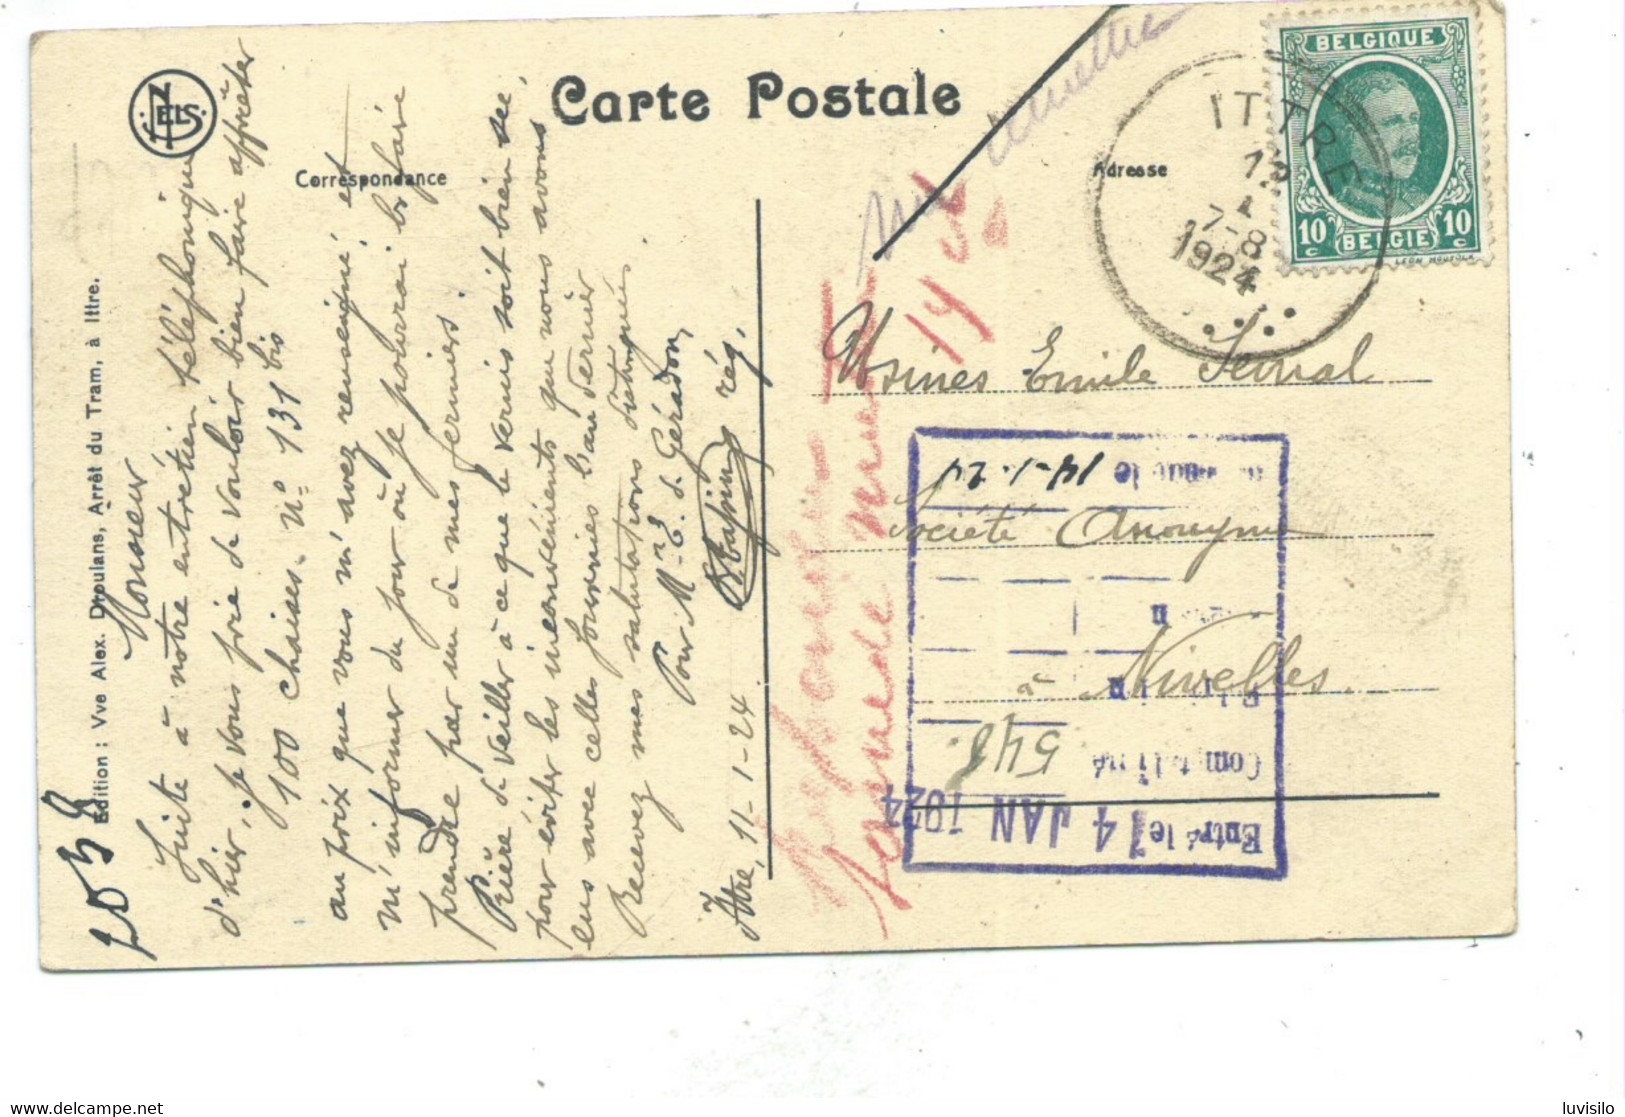 Carte Postale
Correspondance
Adresse
NELS
BELGIQUE
10c 10c
BELGIE
ITTRE
12
1
7-8
1924
Usines Emile
Société Anonyme
à Nivelles.
14-1-24
548
Entré le 14 JAN 1924
Edition : Vve Alex. Droulans, Arrêt du Tram, à Ittre.
Monsieur
Suite à notre entretien téléphonique
d'hier, je vous prie de vouloir bien faire apprêter
100 chaises nº 131 bis
au prix que vous m'avez renseigné et
m'informer du jour où je pourrai les faire
prendre par un de mes fermiers.
Prière de veiller à ce que le vernis soit bien sec,
pour éviter les inconvénients que nous avons
eus avec celles fournies l'an dernier
Recevez mes salutations distinguées
Pour Mr E. de Géradon,
rég.
Ittre, 11-1-24
luvisilo